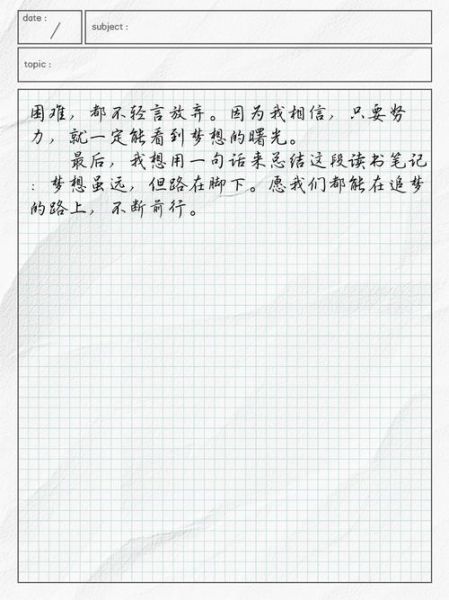 date :
subject :
/
topic :
困难，都不轻言放弃。因为我相信，只要努
力，就一定能看到梦想的曙光。
最后，我想用一句话来总结这段读书笔记
：梦想虽远，但路在脚下。愿我们都能在追梦
的路上，不断前行。